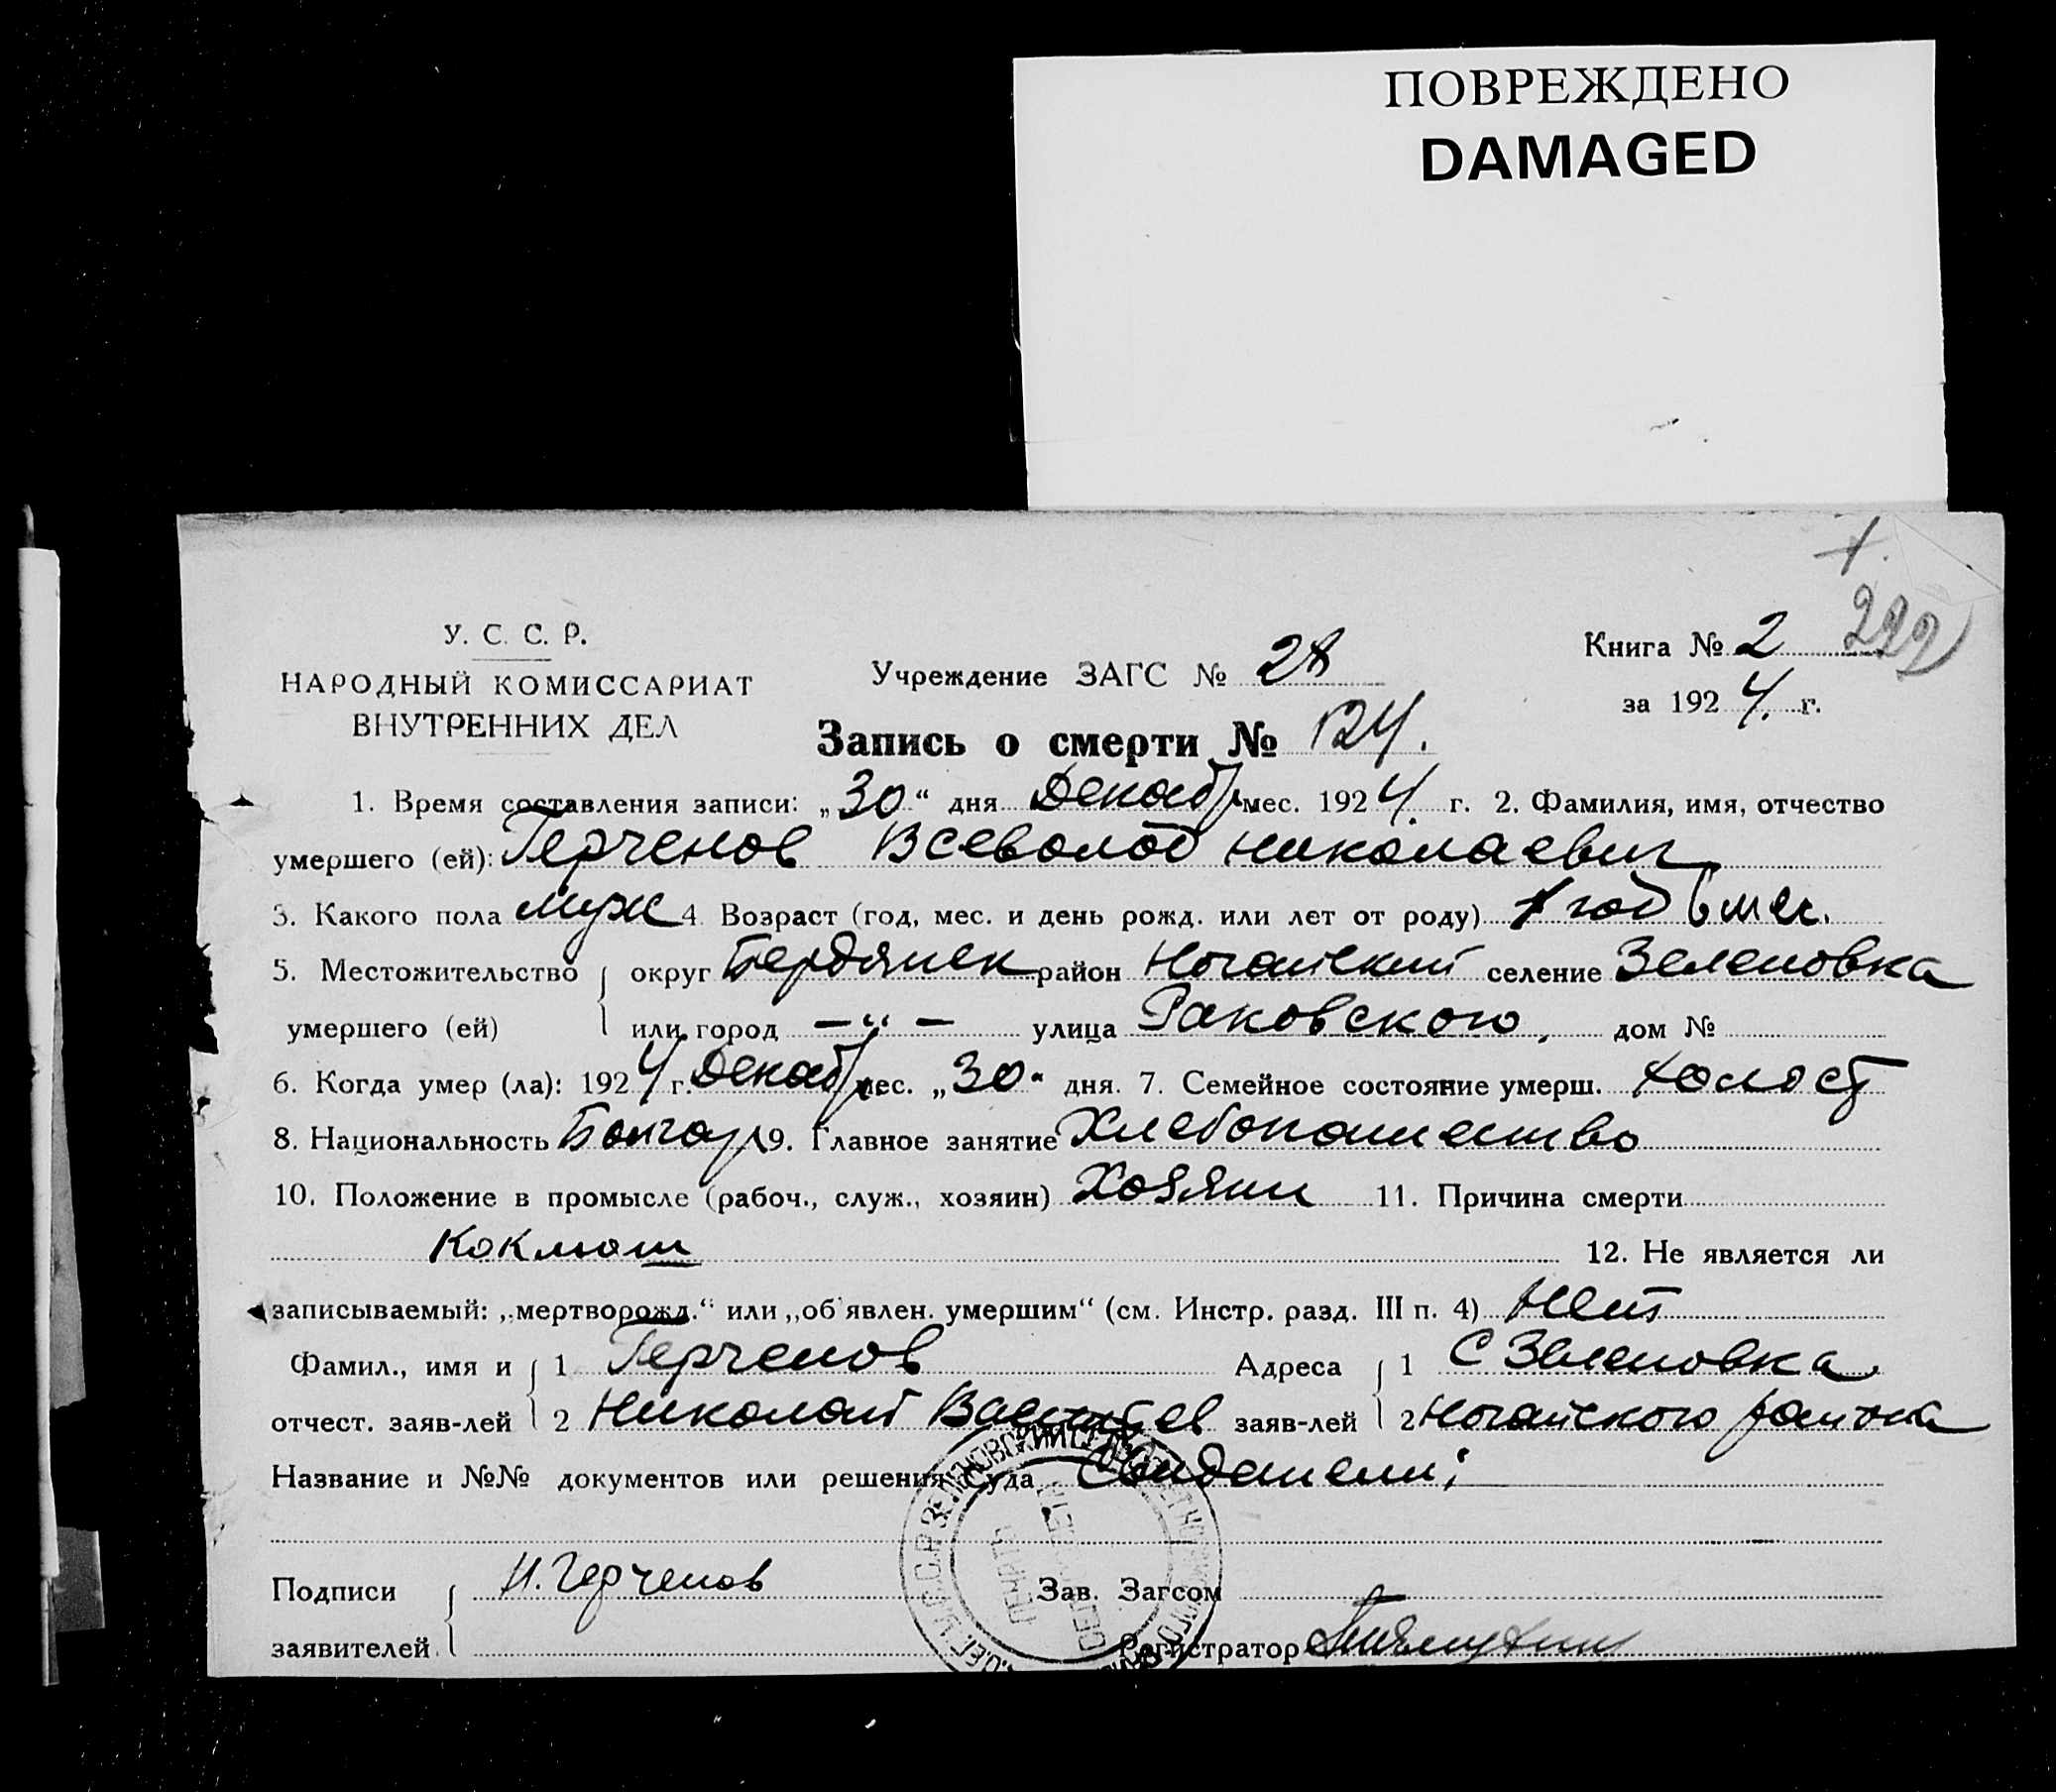 ПОВРЕЖДЕНО
DAMAGED
222
У. С. С. Р.
НАРОДНЫЙ КОМИССАРИАТ
ВНУТРЕННИХ ДЕЛ
Учреждение ЗАГС № 28
Книга № 2
за 1924. г.
Запись о смерти № 124.
1. Время составления записи: „30“ дня Декабр мес. 1924. г. 2. Фамилия, имя, отчество
умершего (ей): Герченов Всеволод Николаевич
3. Какого пола муж 4. Возраст (год, мес. и день рожд. или лет от роду) 1 год 6 мес.
5. Местожительство округ Бердянск район Ногайский селение Зеленовка
умершего (ей) или город —„— улица Раковского, дом №
6. Когда умер (ла): 1924 г. Декабр мес. „30“ дня. 7. Семейное состояние умерш. холост
8. Национальность Болгар 9. Главное занятие Хлебопашество
10. Положение в промысле (рабоч., служ., хозяин) Хозяин 11. Причина смерти
Коклюш 12. Не является ли
записываемый: „мертворожд.“ или „об'явлен. умершим“ (см. Инстр. разд. III п. 4) Нет
Фамил., имя и 1 Герченов Адреса 1 С Зеленовка
отчест. заяв-лей 2 Николай заяв-лей 2 Ногайского района
Название и №№ документов или решения Суда
Подписи Н. Герченов Зав. Загсом
заявителей Регистратор